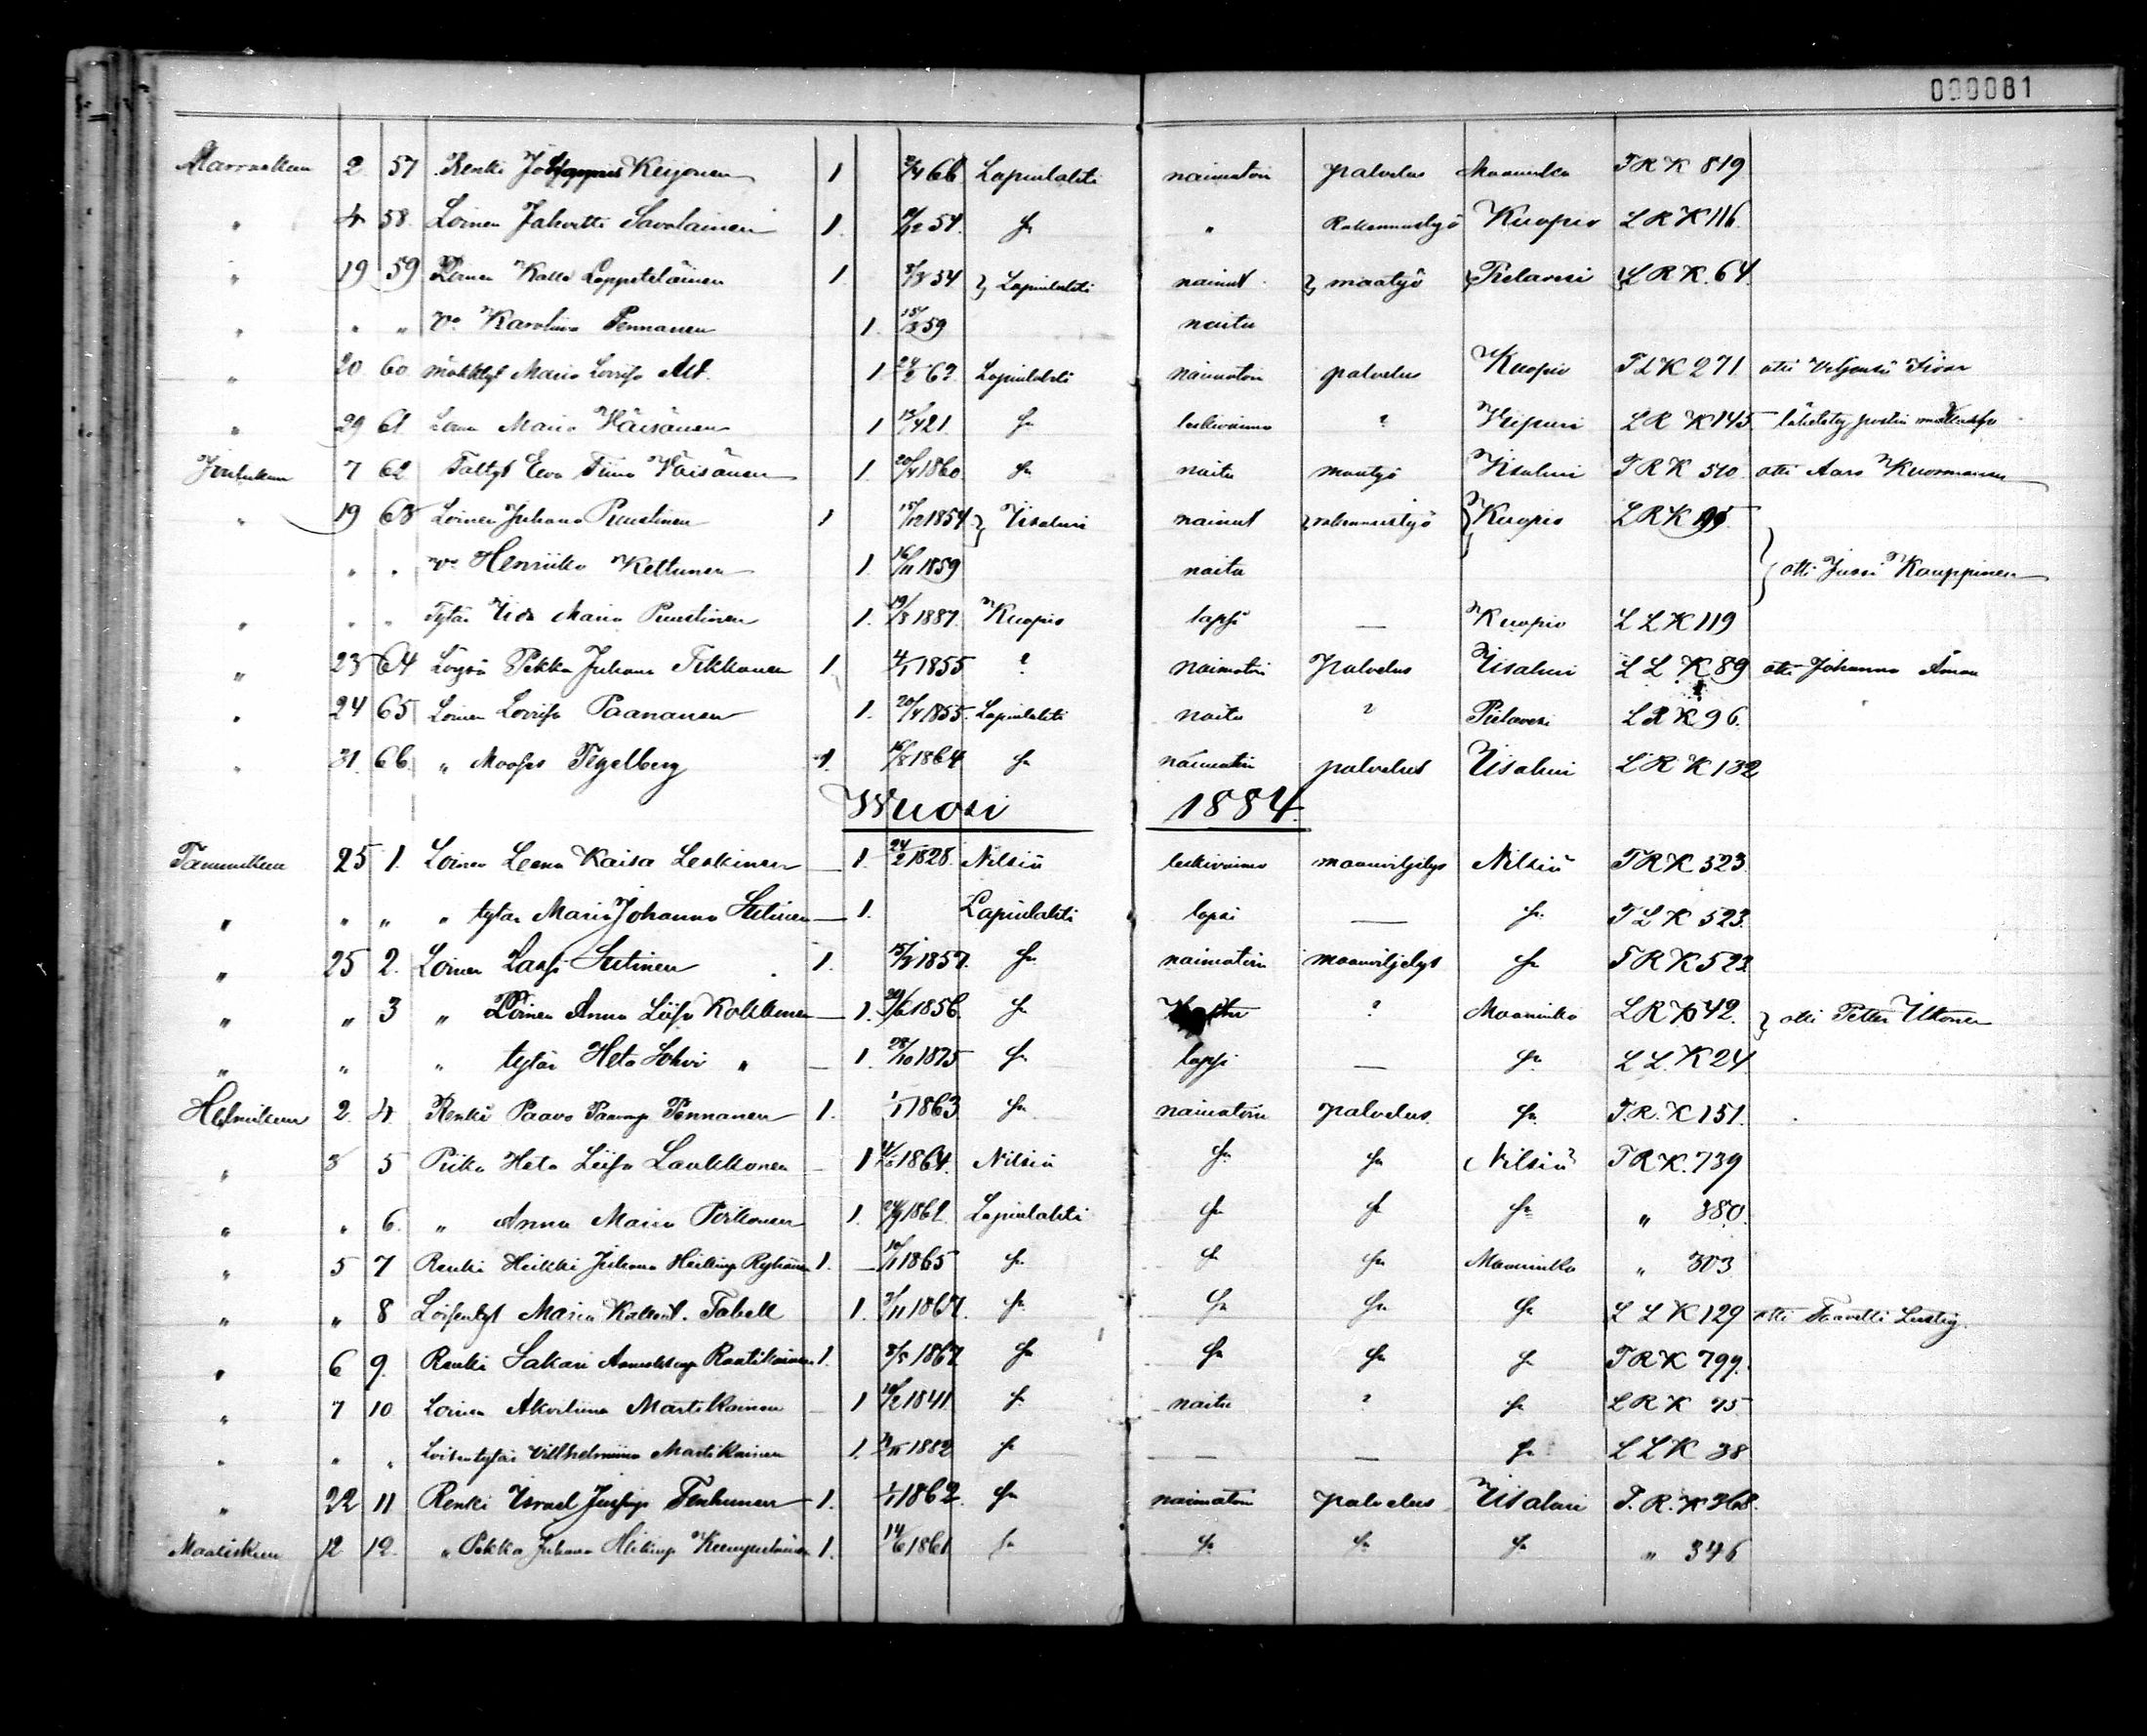 000081
Marraskuu 2 57 Renki Keijonen 1 2/4 66 Lapinlahti naimaton palvelus Maaninka TRK 819
" 4 58. Loinen Jahvetti Savolainen 1. /12 54. " Rakennustyö Kuopio LRK 116.
" 19 59 Loinen Kalle Lappeteläinen 1. 8/8 54 } Lapinlahti nainut } maatyö } Pielavesi } LRK. 64.
" " " Vo Karoliina Pennanen 1. 15/8 59 naitu
" 20. 60. mökktyt Maria Lovisa Alt. 1. 24/2 62 Lapinlahti naimaton palvelus Kuopio TLK 271 otti Veljensä Iivar
" 29 61. Loinen Maria Väisänen 1 421 leskivaimo ? Viipuri LRK 145 postin
Joulukuu 7 62 Taltyt Eeva Tiina Väisänen 1. 20/4 1860 naitu maatyö Iisalmi TRK 510 otti Aaro Kuosmanen
" 19 63 Loinen Juhana Puustinen 1 15/12 1854. } Iisalmi nainut } rakennustyö } Kuopio LRK 195
" " vo Henriikka Kettunen 1. 16/11 1859 naitu } otti Jussi Kauppinen
" " " Tytär Iida Maria Puustinen 1. 19/8 1887. Kuopio lapsi — Kuopio LLK 119
" 23 64 Löysä Pekka Juhana Tikkanen 1. 4/1 1855 ? naimaton Palvelus Iisalmi LLK 89 otti Johanna Åman
" 24 65 Loinen Lovisa Paananen 1. 20/4 1855. Lapinlahti naitu ? Pielavesi LRK 96.
" 31. 66. " Mooses Tegelberg 1. 16/8 1864 naimaton palvelus Iisalmi LRK 132
Wuosi 1884.
Tammikuu 25 1. Loinen Leena Kaisa Leskinen — 1. 24/2 1828. Nilsiä leskivaimo maanviljelys Nilsiä TRK 523.
" " " " tytär Maria Johanna Sutinen — 1. Lapinlahti lapsi — TLK 523.
" 25 2. Loinen Lassi Sutinen 1. 15/8 1857. naimaton maanviljelys TRK 523
" " 3 " Loinen Anna Liisa Kokkonen — 1. /6 1856. ? Maaninka LRK 42. } otti Petter Ukonen
" " " tytär Heta Sohvi " — 1. 28/10 1875 lapsi — LLK 24.
Helmikuu 2. 4. Renki Paavo Paavop Pennanen 1. 1/1 1863. naimaton palvelus. TRK 151.
" 3 5 Piika Heta Liisa Laukkonen — 1 1864. Nilsiä Nilsiä TRK. 739
" " 6. " Anna Maria Pirkonen 1. 24/9 1862. Lapinlahti " 380.
" 5 7 Renki Heikki Juhana Heikinp Ryhänen 1. — 10/1 1865 Maaninka " 303
" " 8 Loisentyt Maria Tabell 1. 3/11 1867. LLK 129 otti Taavetti Lustig.
" 6 9. Renki Sakari Rautiainen 1. 8/5 1867 TRK 799.
" 7 10. Loinen Akviliina Martikainen — 1 10/2 1841 naitu ? LRK 75
" " " Loisentytär Villhelmiina Martikainen 1. 1882 — — LLK 38
" 22 11 Renki Israel Jusinp Tenhunen 1. 1/1 1862. naimaton palvelus Iisalmi T.R.K 368.
Maaliskuu 12 12. " Pekka Juhana Heikinp 1. 14/6 1861 " 346